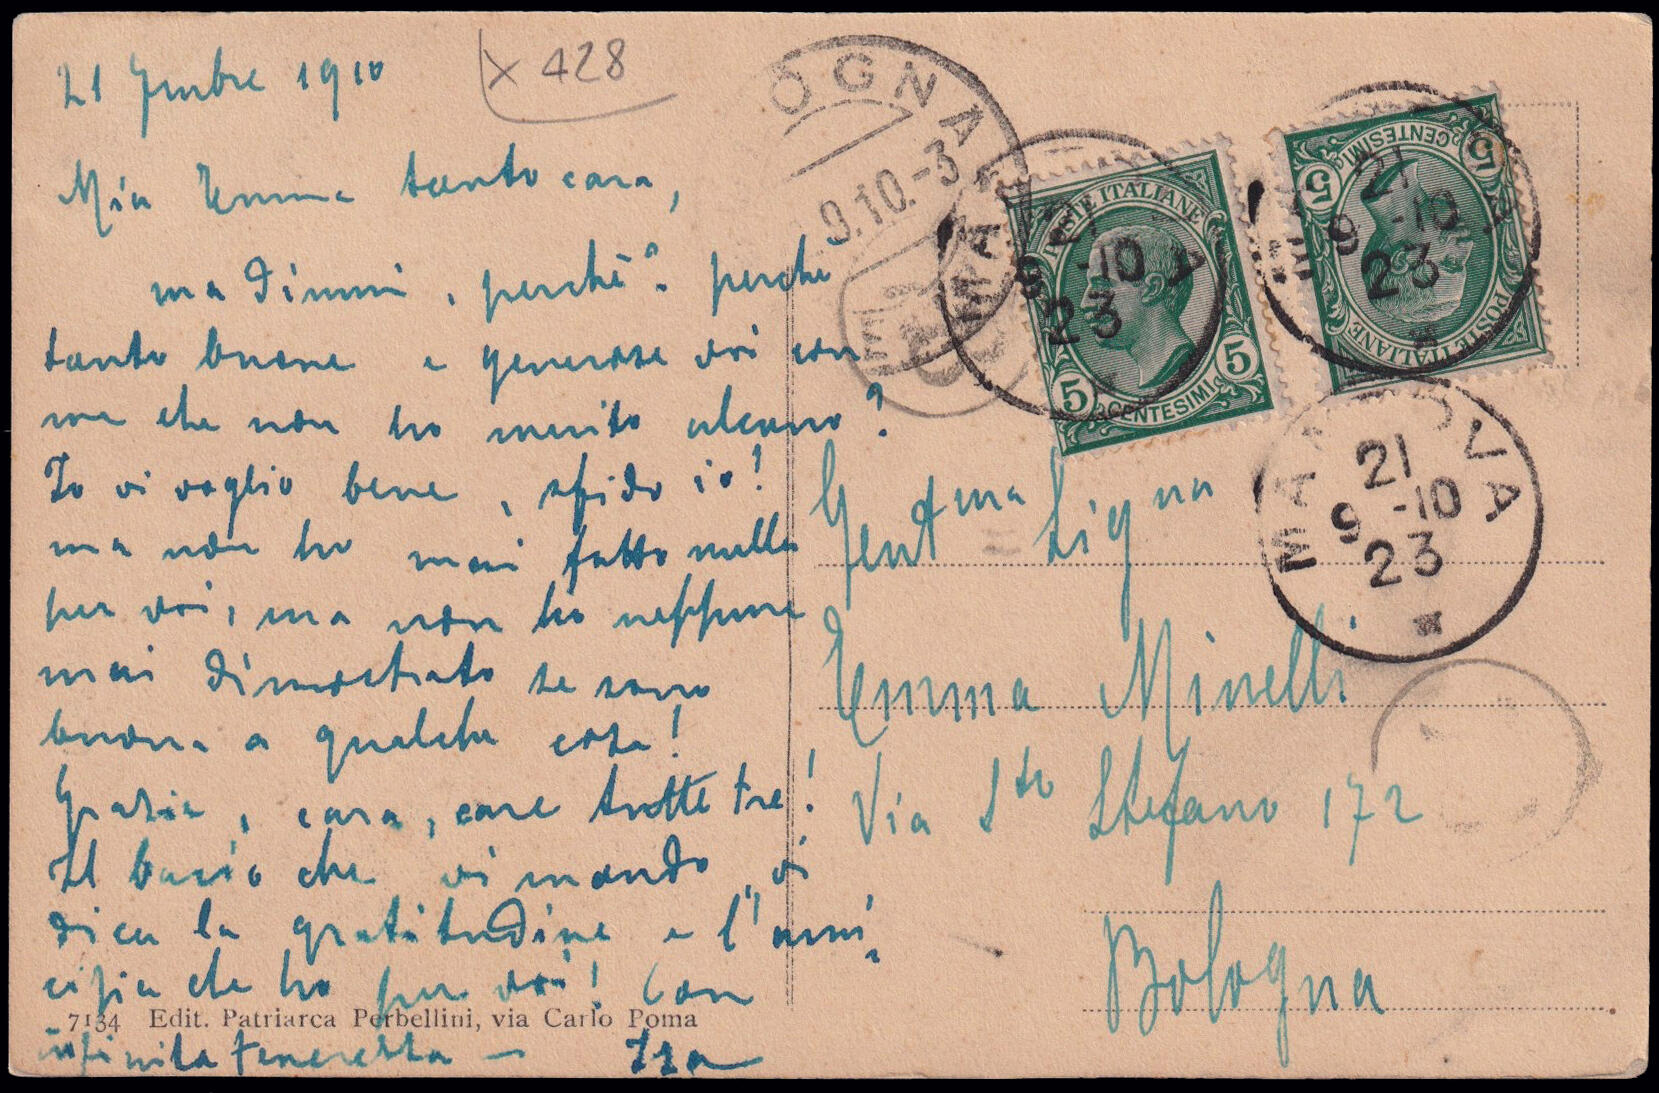 21 9mbre 1910
X 428
Mia Emma tanto cara,
ma dimmi, perchè? perchè
tanto buone e generose voi con
me che non ho merito alcuno?
Io vi voglio bene, sfido io!
ma non ho mai fatto nulla
per voi, ma non ho neppure
mai dimostrato se sono
buona a qualche cosa!
Grazie, cara, care tutte tre!
Il bacio che vi mando, vi
dica la gratitudine e l'ami-
cizia che ho per voi! Con
infinita tenerezza — Isa
7134 Edit. Patriarca Perbellini, via Carlo Poma
OGNA
9.10.-3
POSTE ITALIANE
5 CENTESIMI 5
POSTE ITALIANE
5 CENTESIMI 5
MA
9 -10
23
21
9 -10
23
MANTOVA
21
9 -10
23
Gentma Signa
Emma Minelli
Via Sto Stefano 172
Bologna